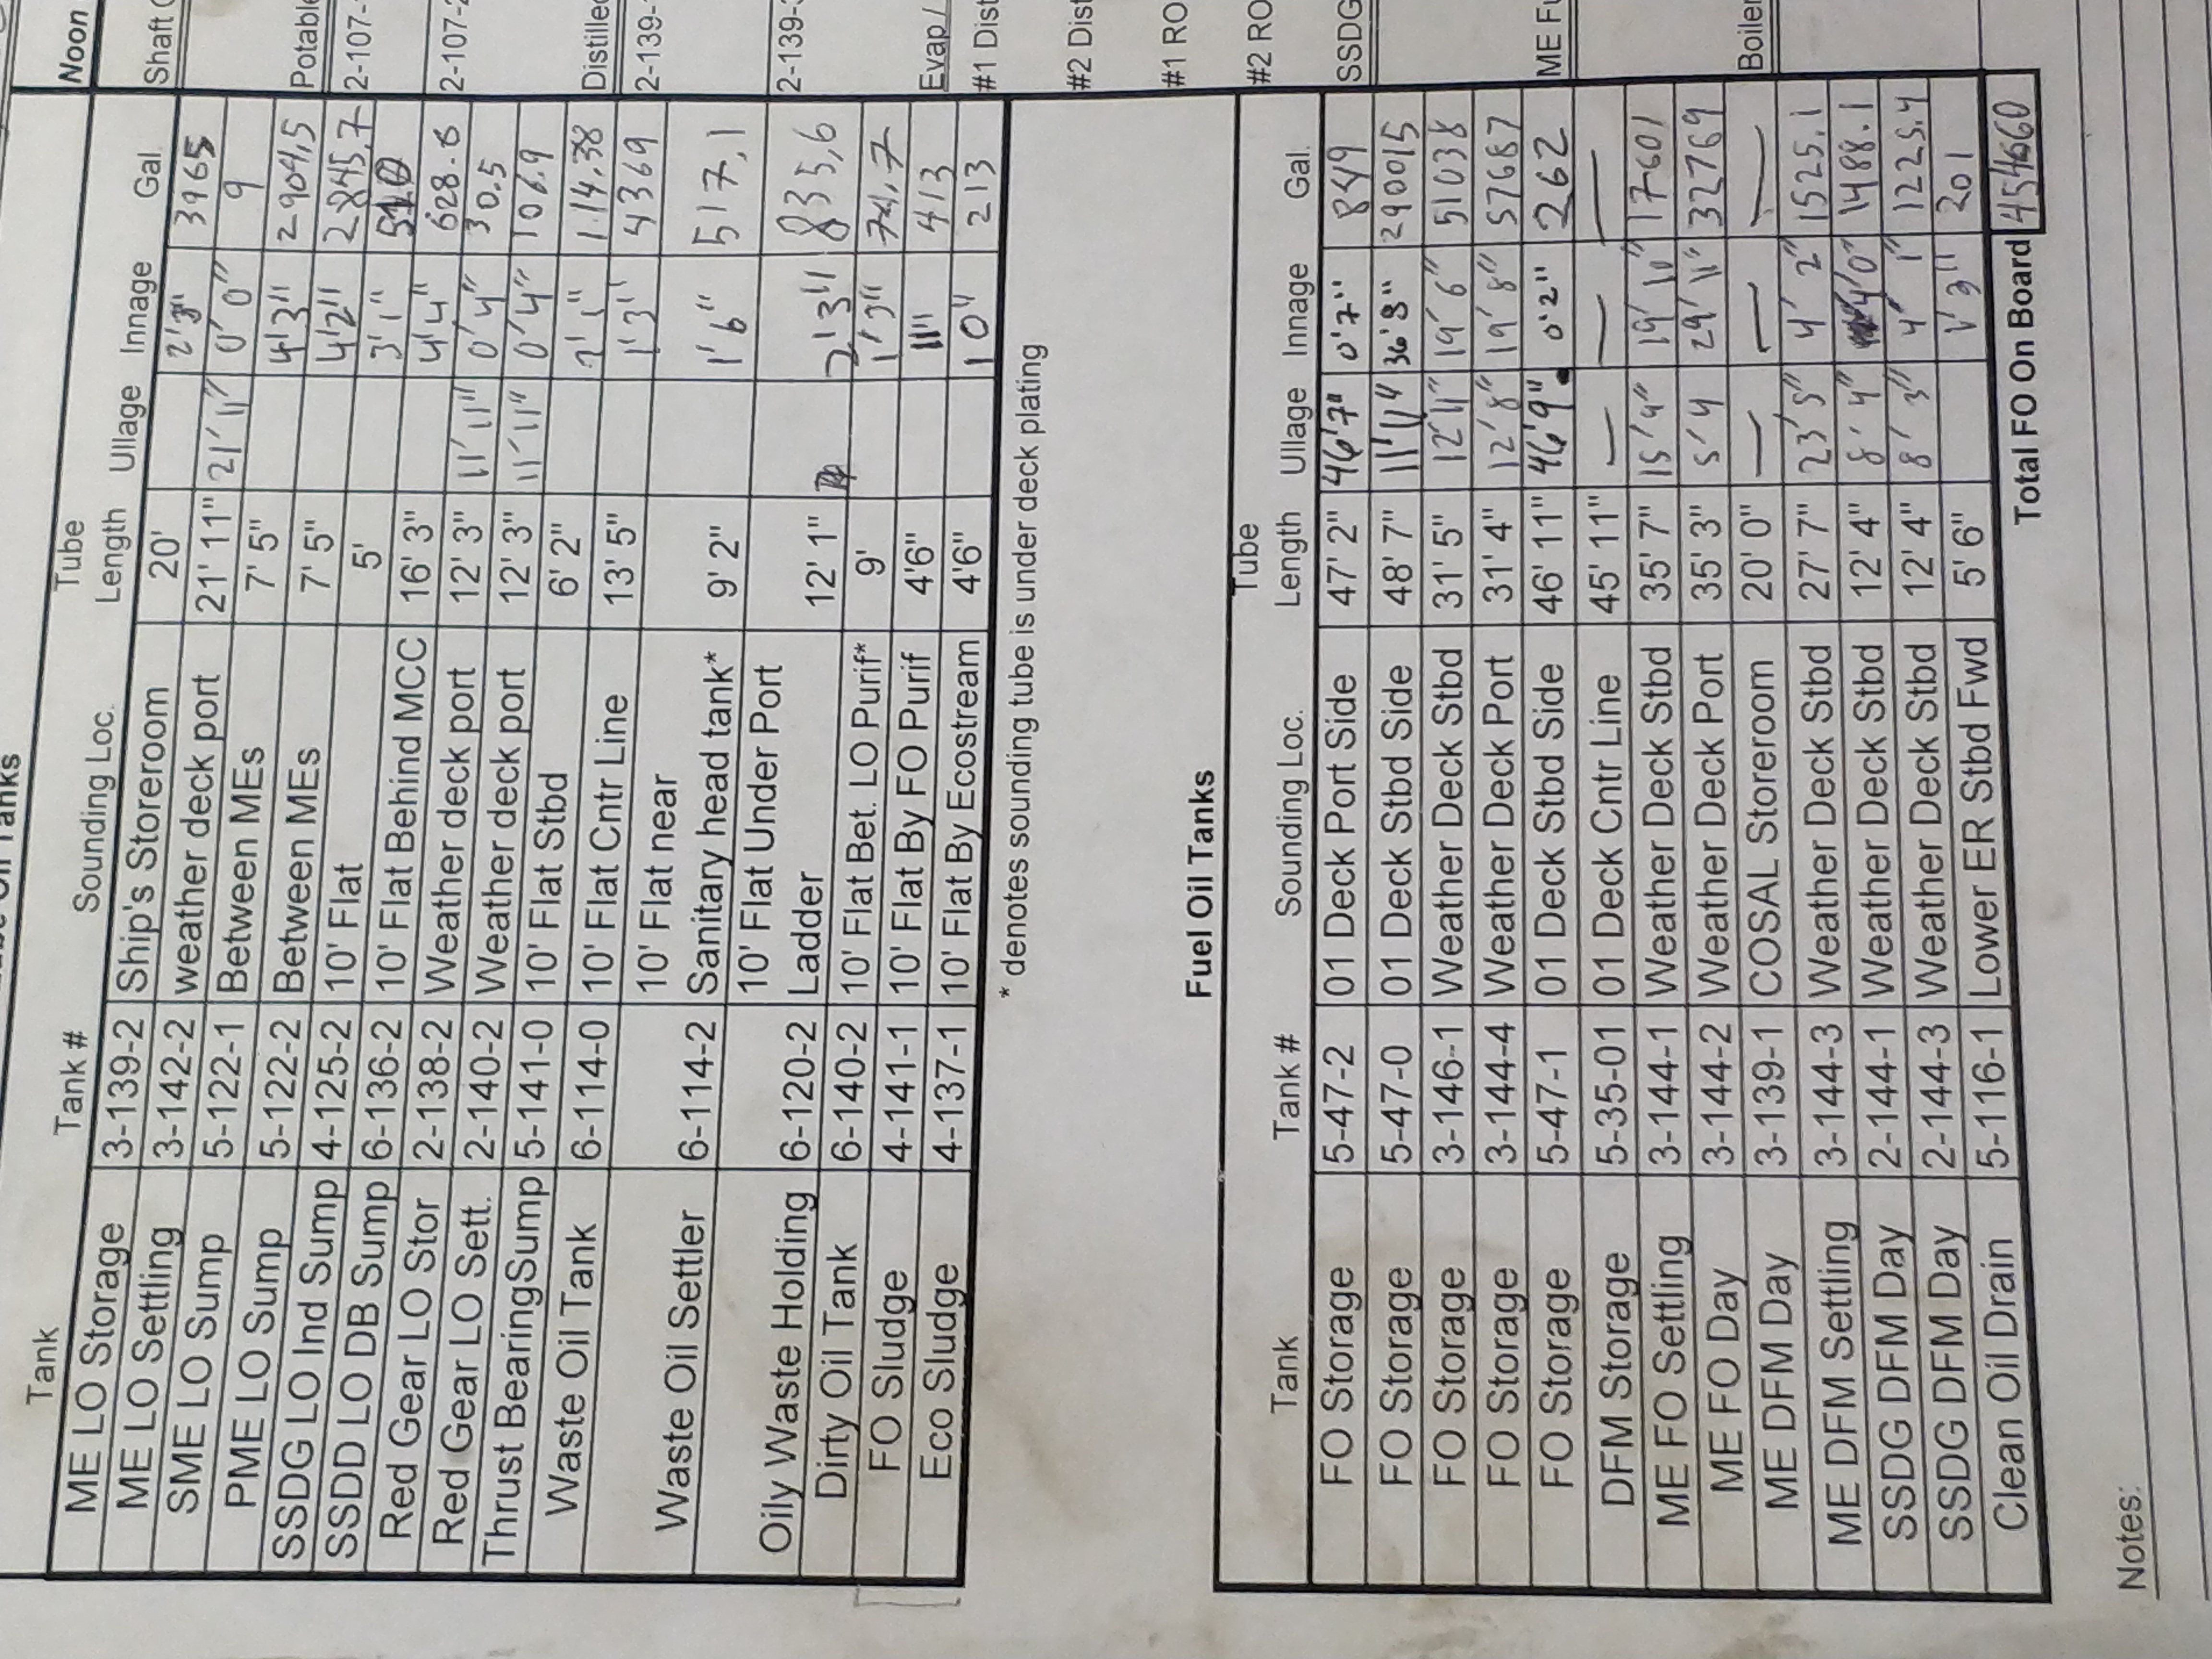 Oil Tanks
Tank Tank # Sounding Loc. Tube Length Ullage Innage Gal.
ME LO Storage 3-139-2 Ship's Storeroom 20' 2'3" 3965
ME LO Settling 3-142-2 weather deck port 21' 11" 21' 11" 0' 0" 9
SME LO Sump 5-122-1 Between MEs 7' 5" 4'3" 2904,5
PME LO Sump 5-122-2 Between MEs 7' 5" 4'2" 2845,7
SSDG LO Ind Sump 4-125-2 10' Flat 5' 3'1" 510
SSDD LO DB Sump 6-136-2 10' Flat Behind MCC 16' 3" 4'4" 628.6
Red Gear LO Stor 2-138-2 Weather deck port 12' 3" 11' 11" 0'4" 30.5
Red Gear LO Sett. 2-140-2 Weather deck port 12' 3" 11' 11" 0'4" 106.9
Thrust BearingSump 5-141-0 10' Flat Stbd 6' 2" 2' 1" 114.38
Waste Oil Tank 6-114-0 10' Flat Cntr Line 13' 5" 1'3" 4369
Waste Oil Settler 6-114-2 10' Flat near Sanitary head tank* 9' 2" 1'6" 517,1
Oily Waste Holding 6-120-2 10' Flat Under Port Ladder 12' 1" 2'3" 835,6
Dirty Oil Tank 6-140-2 10' Flat Bet. LO Purif* 9' 1'3" 74,7
FO Sludge 4-141-1 10' Flat By FO Purif 4'6" 11" 413
Eco Sludge 4-137-1 10' Flat By Ecostream 4'6" 10" 213
* denotes sounding tube is under deck plating
Fuel Oil Tanks
Tank Tank # Sounding Loc. Tube Length Ullage Innage Gal.
FO Storage 5-47-2 01 Deck Port Side 47' 2" 46'7" 0'7" 849
FO Storage 5-47-0 01 Deck Stbd Side 48' 7" 11'11" 36'8" 290015
FO Storage 3-146-1 Weather Deck Stbd 31' 5" 12'11" 19' 6" 51038
FO Storage 3-144-4 Weather Deck Port 31' 4" 12'8" 19' 8" 57687
FO Storage 5-47-1 01 Deck Stbd Side 46' 11" 46'9" 0'2" 262
DFM Storage 5-35-01 01 Deck Cntr Line 45' 11" — — —
ME FO Settling 3-144-1 Weather Deck Stbd 35' 7" 15'9" 19' 10" 17601
ME FO Day 3-144-2 Weather Deck Port 35' 3" 5'4 29' 11" 32769
ME DFM Day 3-139-1 COSAL Storeroom 20' 0" — — —
ME DFM Settling 3-144-3 Weather Deck Stbd 27' 7" 23' 5" 4' 2" 1525.1
SSDG DFM Day 2-144-1 Weather Deck Stbd 12' 4" 8' 4" 4'0" 1488.1
SSDG DFM Day 2-144-3 Weather Deck Stbd 12' 4" 8' 3" 4' 1" 1225.4
Clean Oil Drain 5-116-1 Lower ER Stbd Fwd 5' 6" 1'3" 201
Total FO On Board 454660
Notes:
Noon
Shaft
Potable
2-107-
2-107-2
Distilled
2-139-
2-139-3
Evap /
#1 Dist
#2 Dist
#1 RO
#2 RO
SSDG
ME Fu
Boiler